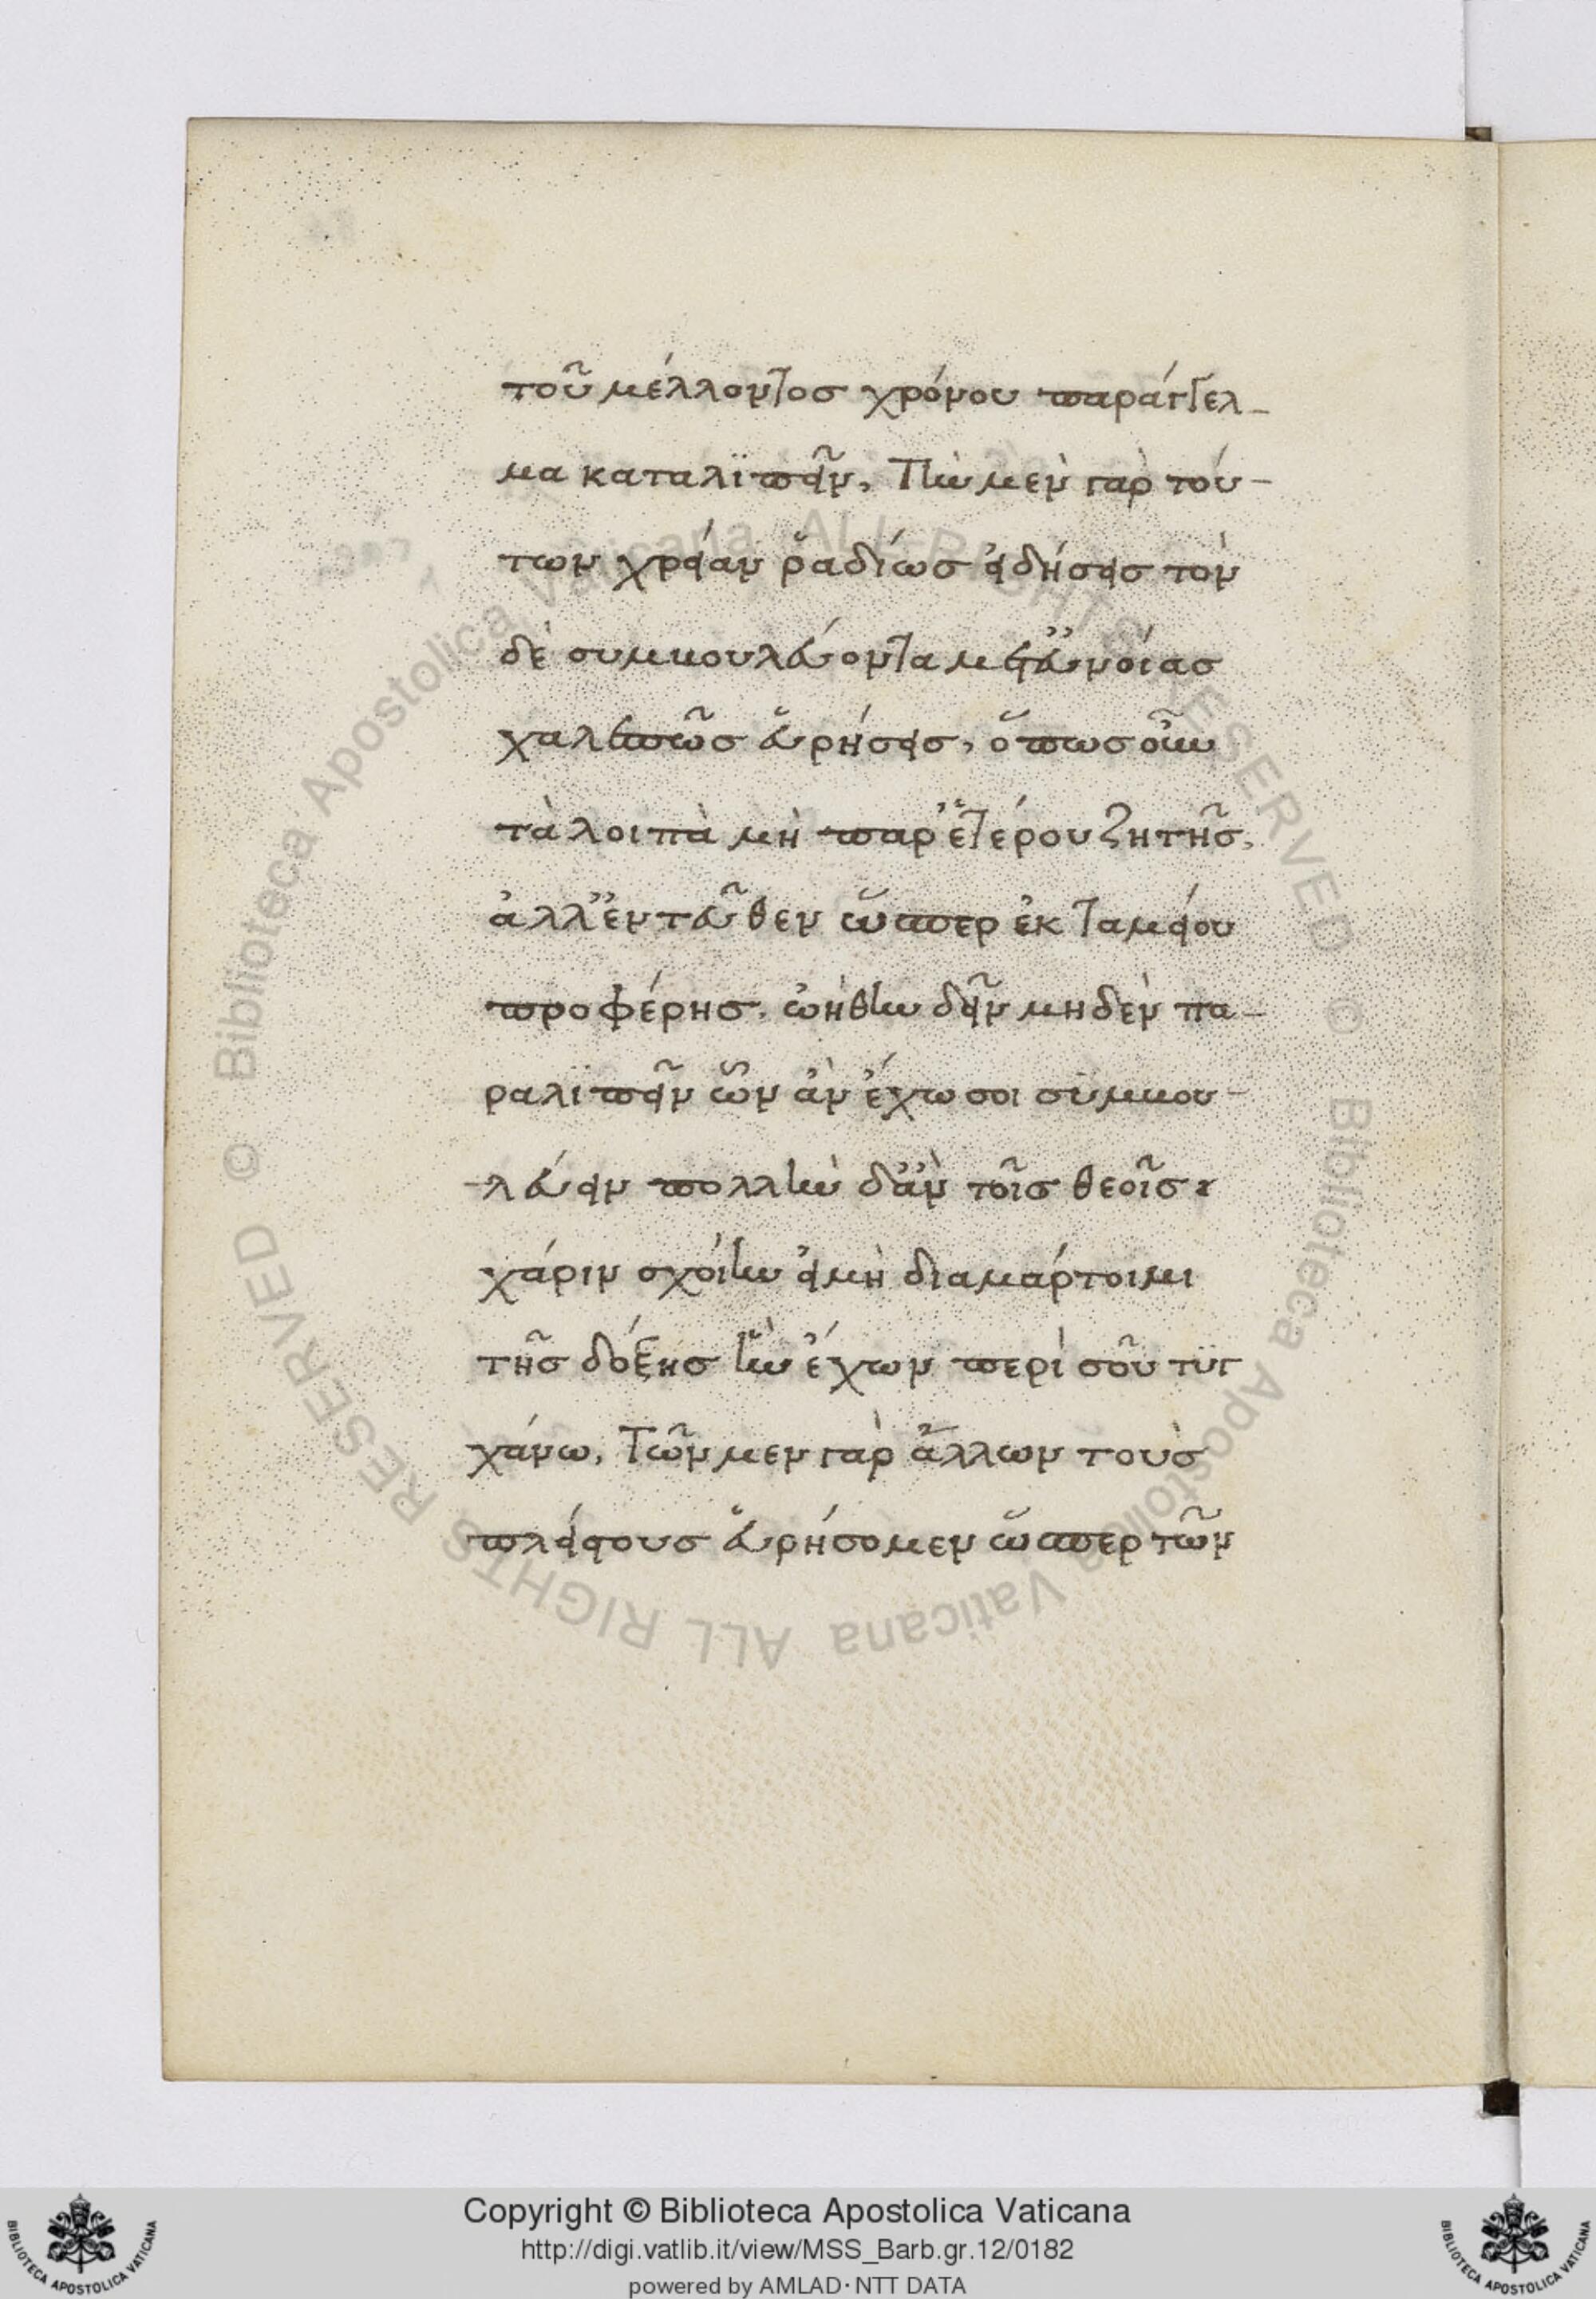 τοῦ μέλλοντος χρόνου παράγγελ-
μα καταλϊπεῖν, Τὴν μὲν γὰρ τού-
των χρείαν ῥαδίως εἰδήσεις τὸν
δὲ συμβουλεύοντα μετ' εὐνοίας
χαλεπῶς εὑρήσεις, ὅπως οὖν
τὰ λοιπὰ μὴ παρ' ἑτέρου ζητῆς,
ἀλλ' ἐντεῦθεν ὥσπερ ἐκ ταμείου
προφέρης, ὠήθην δεῖν μηδὲν πα-
ραλϊπεῖν ὧν ἂν ἔχω σοι συμβου-
λεύειν πολλὴν δ' ἂν τοῖς θεοῖς
χάριν σχοίην εἰ μὴ διαμάρτοιμι
τῆς δόξης ἣν ἔχων περὶ σοῦ τϋγ
χάνω, Τῶν μεν γὰρ ἄλλων τοὺς
πλείστους εὑρήσομεν ὥσπερ τῶν
Copyright © Biblioteca Apostolica Vaticana
http://digi.vatlib.it/view/MSS_Barb.gr.12/0182
powered by AMLAD·NTT DATA
© Biblioteca Apostolica Vaticana ALL RIGHTS RESERVED
© Biblioteca Apostolica Vaticana ALL RIGHTS RESERVED
BIBLIOTECA APOSTOLICA VATICANA
BIBLIOTECA APOSTOLICA VATICANA